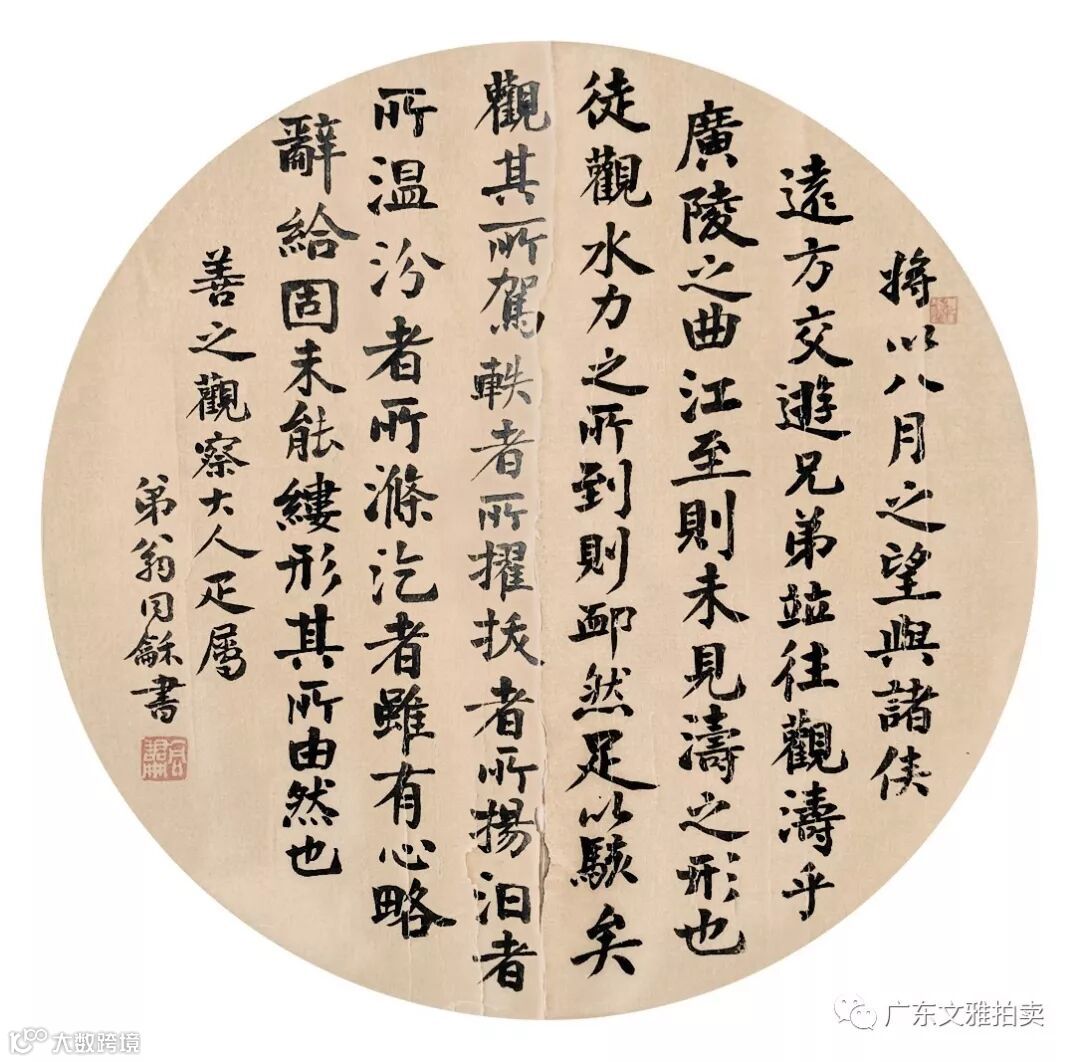 將以八月之望與諸侯
遠方交遊兄弟竝往觀濤乎
廣陵之曲江至則未見濤之形也
徒觀水力之所到則卹然足以駭矣
觀其所駕軼者所擢拔者所揚汩者
所温汾者所滌汔者雖有心略
辭給固未能縷形其所由然也
善之觀察大人疋屬
弟翁同龢書
广东文雅拍卖
大数跨境